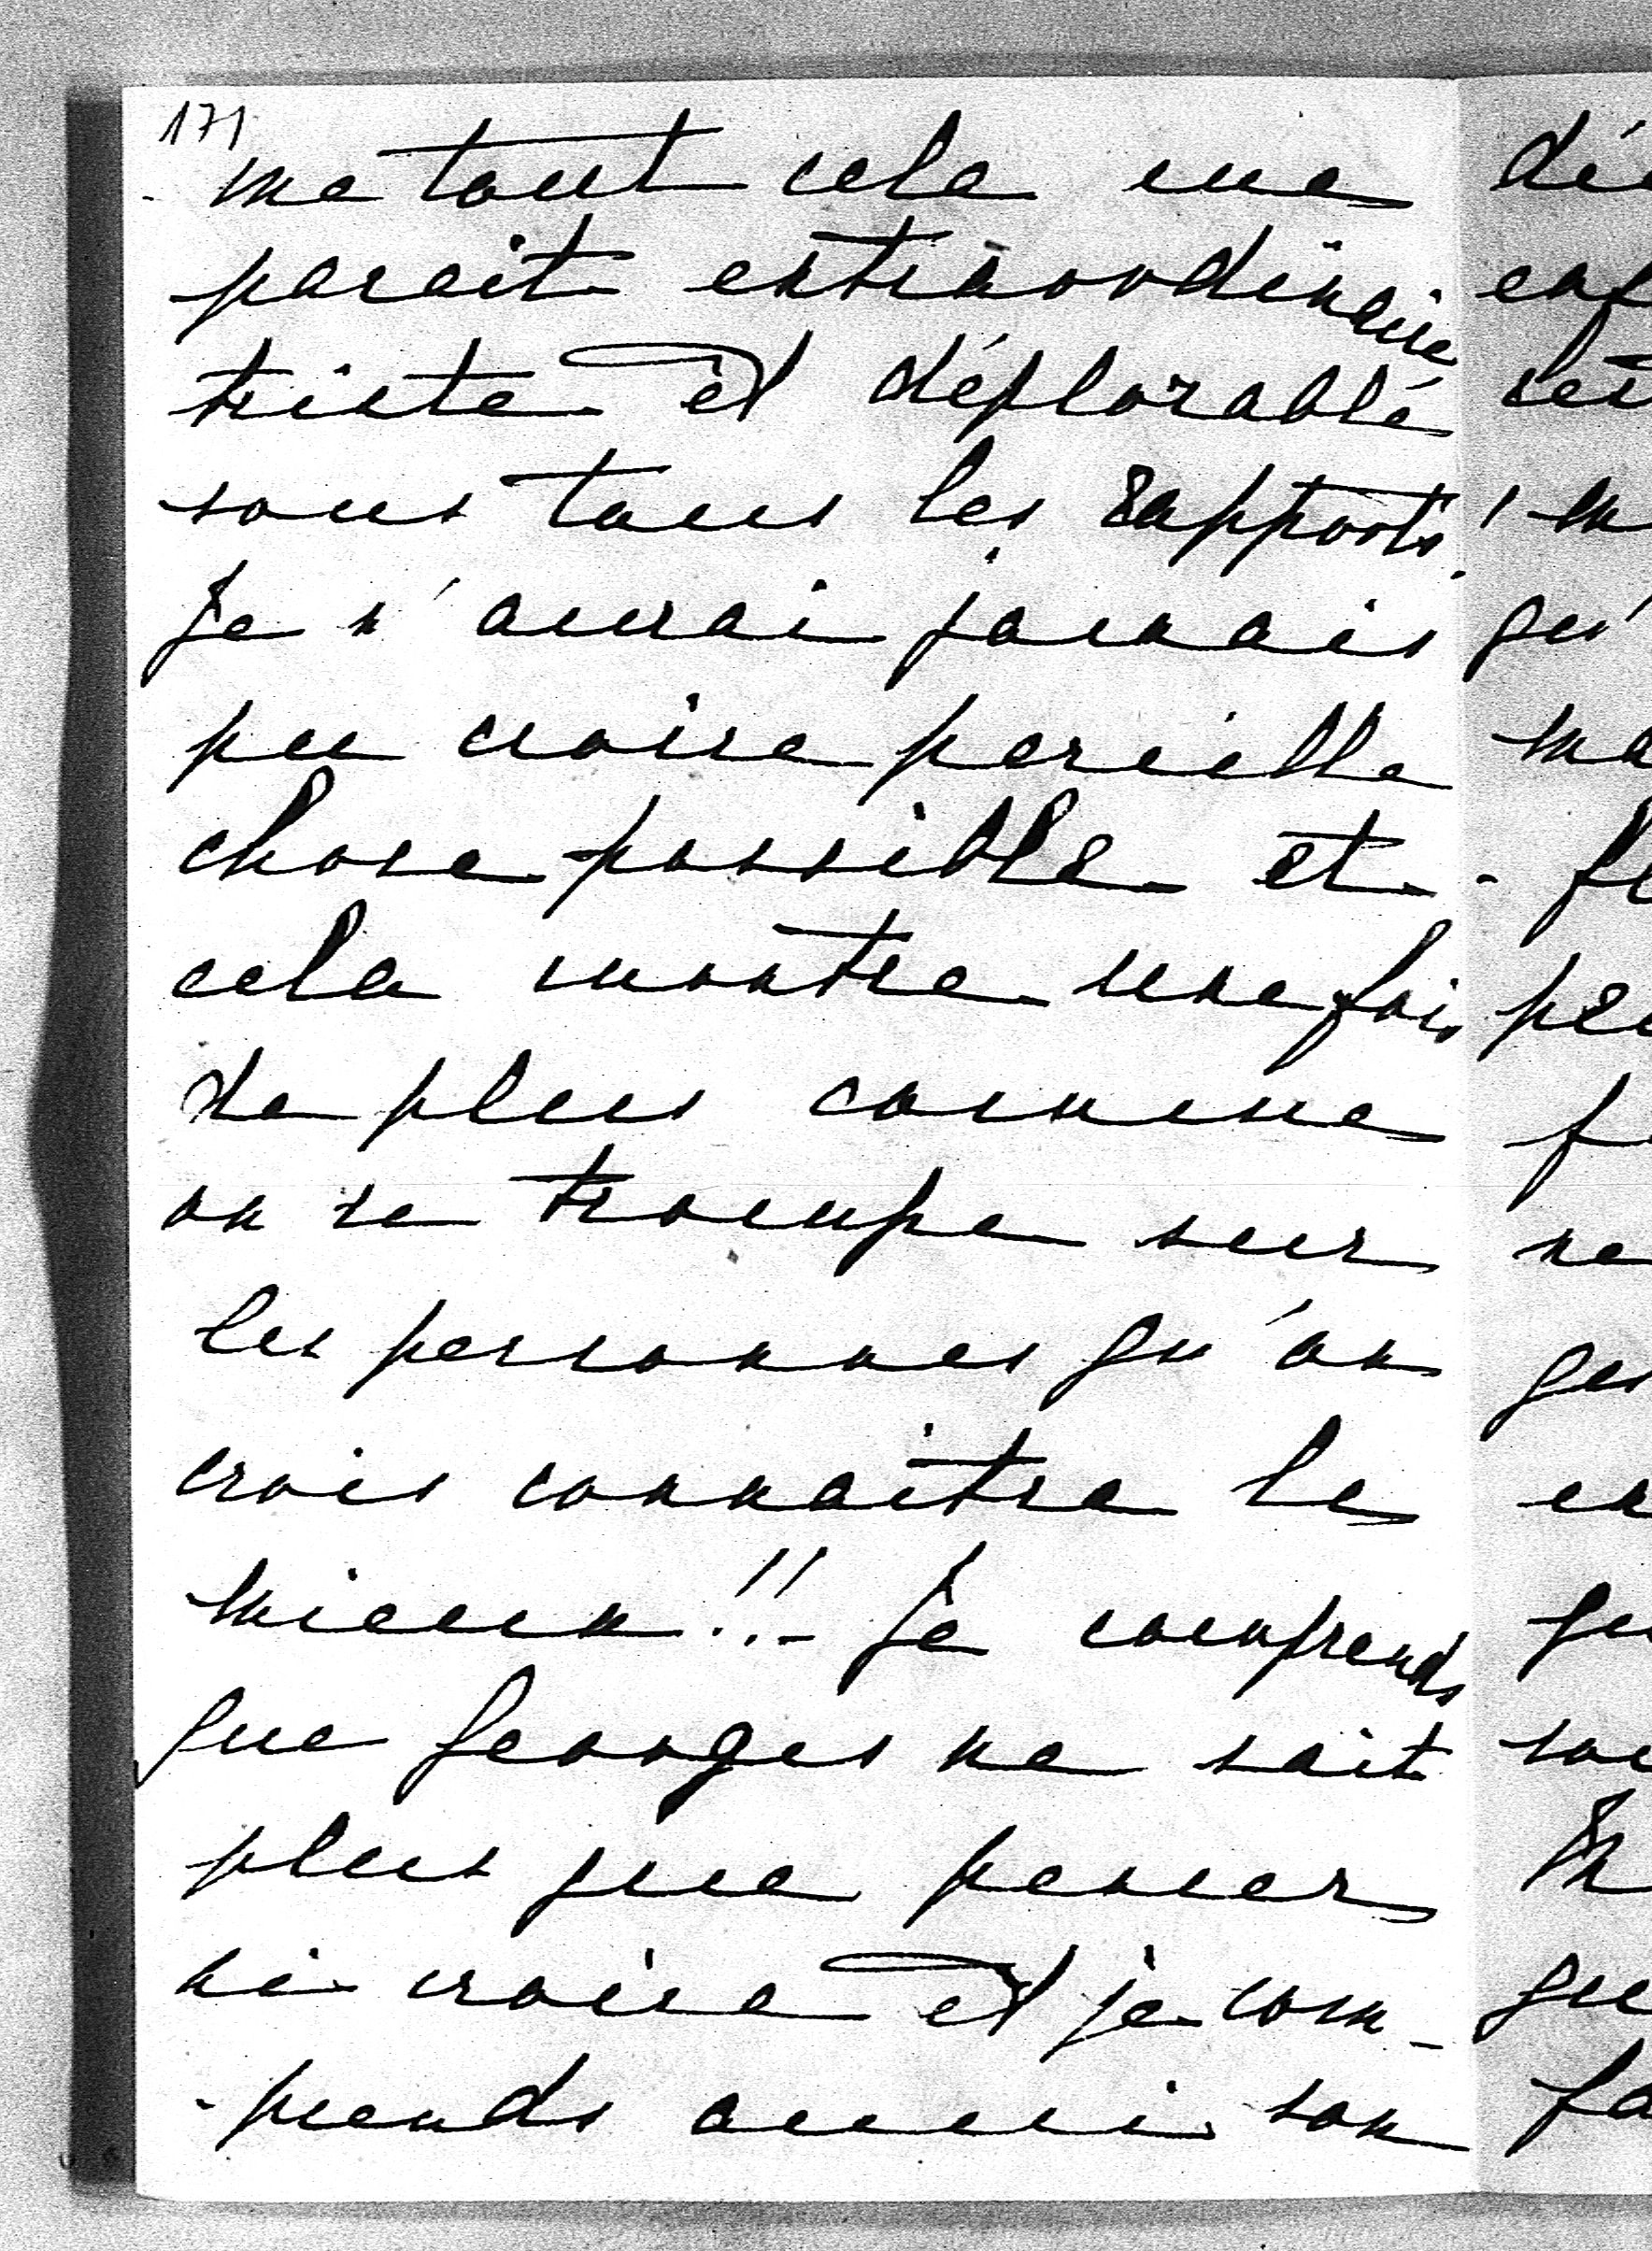 171
- me tout cela me
parait extraordinaire
triste et déplorable
sous tous les rapports.
Je n'aurai jamais
pu croire pareille
chose possible et
cela montre une fois
de plus comme
on se trompe sur
les personnes qu'on
crois connaitre le
mieux!!- Je comprends
que Georges ne sait
plus que penser
ni croire et je com-
-prends aussi son